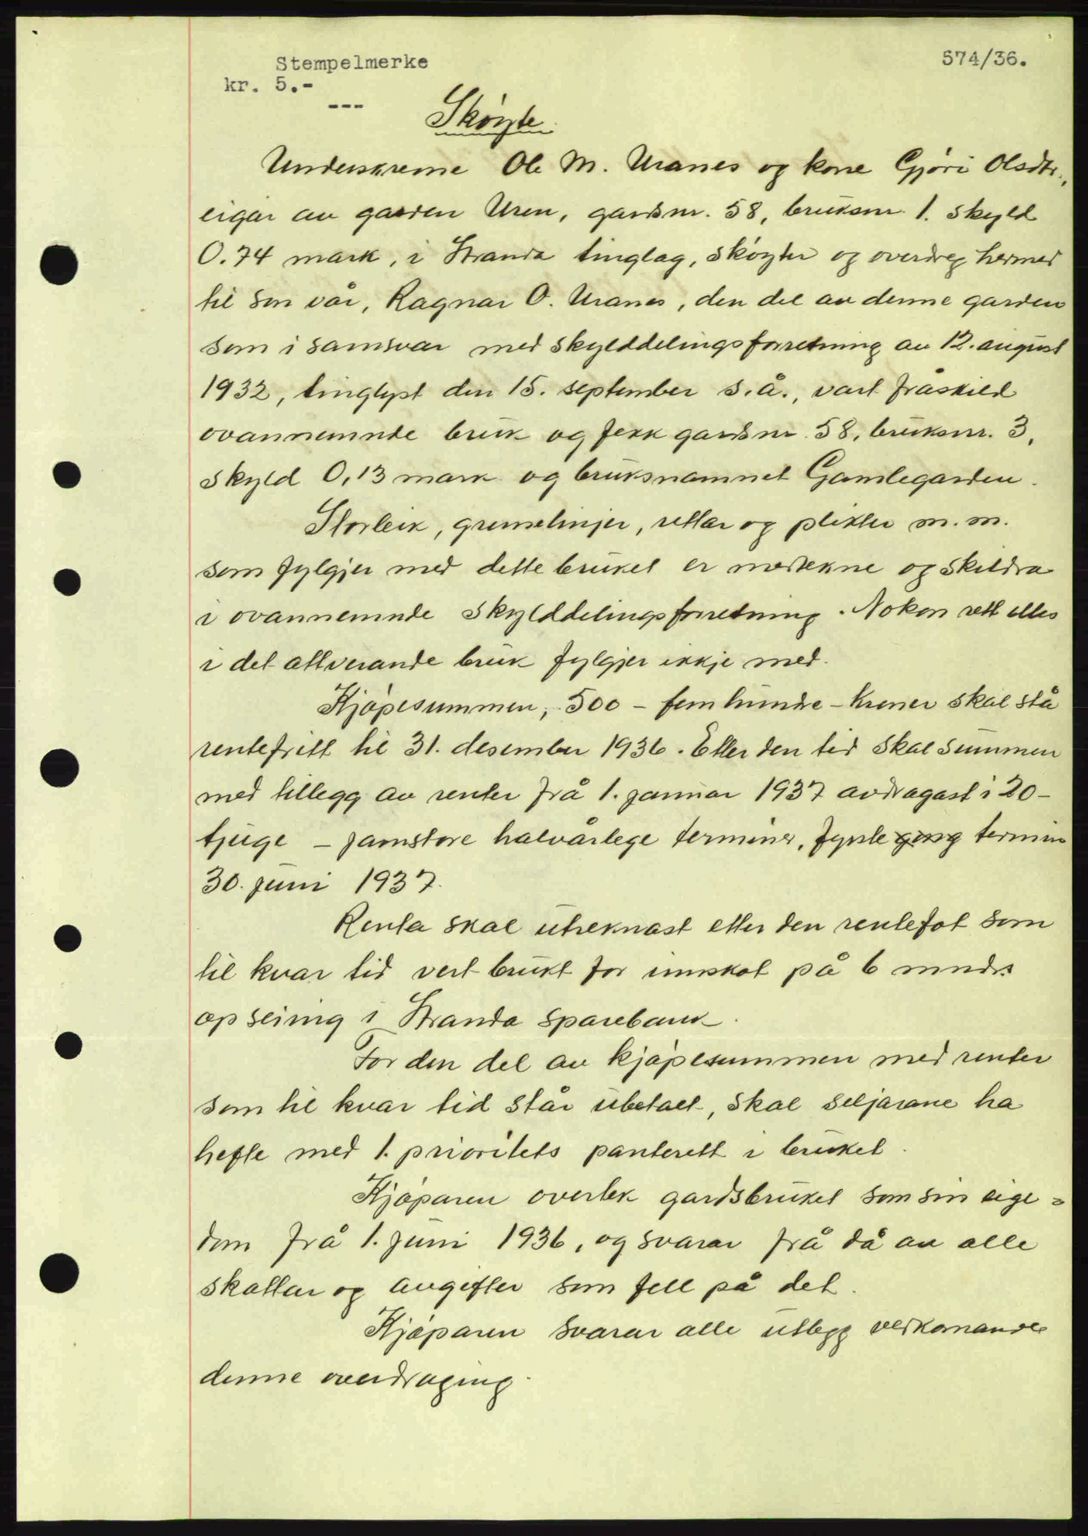 Stempelmerke
kr. 5.-
---
574/36.
Skøyte.
Underskrevne Ole M. Uranes og kone Gjøri Olsdtr.,
eigar av garden Uren, gardsnr. 58, bruksnr. 1. skyld
0.74 mark, i Stranda tinglag, skøyter og overdreg hermed
til son vår, Ragnar O. Uranes, den del av denne garden
som i samsvar med skylddelingsforretning av 12. august
1932, tinglyst den 15. september s.å., vart fråskild
ovannemnde bruk og fekk gardsnr. 58, bruksnr. 3,
skyld 0,13 mark og bruksnamnet Gamlegarden.
Storleik, grenselinjer, rettar og plikter m.m.
som fylgjer med dette bruket er medtekne og skildra
i ovannemnde skylddelingsforretning. Nokon rett elles
i det attverande bruk fylgjer ikkje med.
Kjøpesummen, 500 - femhundre - kroner skal stå
rentefritt til 31. desember 1936. Etter den tid skal summen
med tillegg av renter frå 1. januar 1937 avdragast i 20 -
tjuge - jamstore halvårlege terminer, fyrste gong termin
30. juni 1937.
Renta skal utreknast etter den rentefot som
til kvar tid vert brukt for innskot på 6 mndrs
opseiing i Stranda Sparebank.
For den del av kjøpesummen med renter
som til kvar tid står ubetalt, skal seljarane ha
hefte med 1. prioritets panterett i bruket.
Kjøparen overtek gardsbruket som sin eige=
dom frå 1. juni 1936, og svarar frå då av alle
skattar og avgifter som fell på det.
Kjøparen svarar alle utlegg vedkomande
denne overdraging.